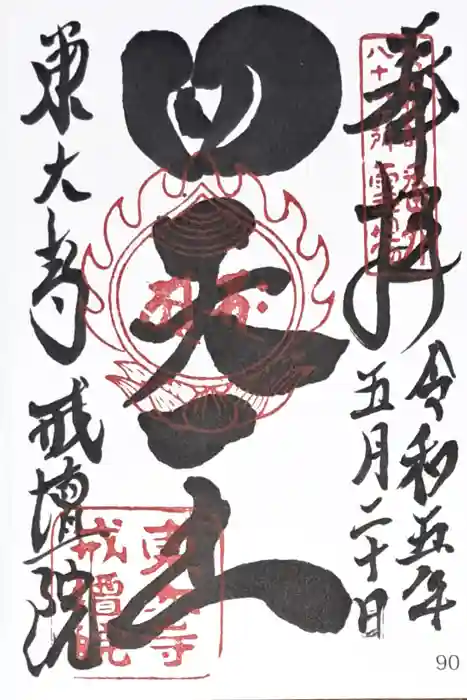 奉拝
令和五年
五月二十日
四天王
東大寺 戒壇院
東大寺
戒壇院
90